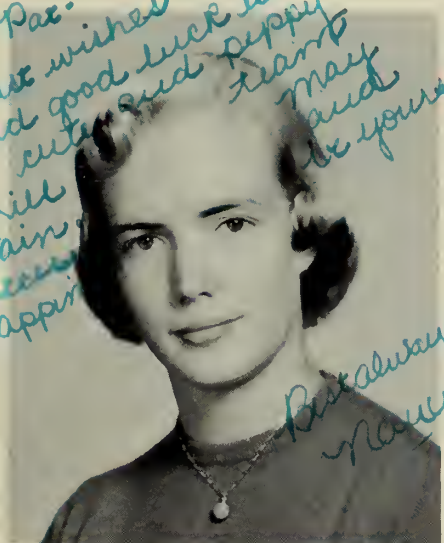 Pat-
wishes
good luck to
cute and peppy
team
May
and
be yours
ill
ain
appin
Best always
Nancy